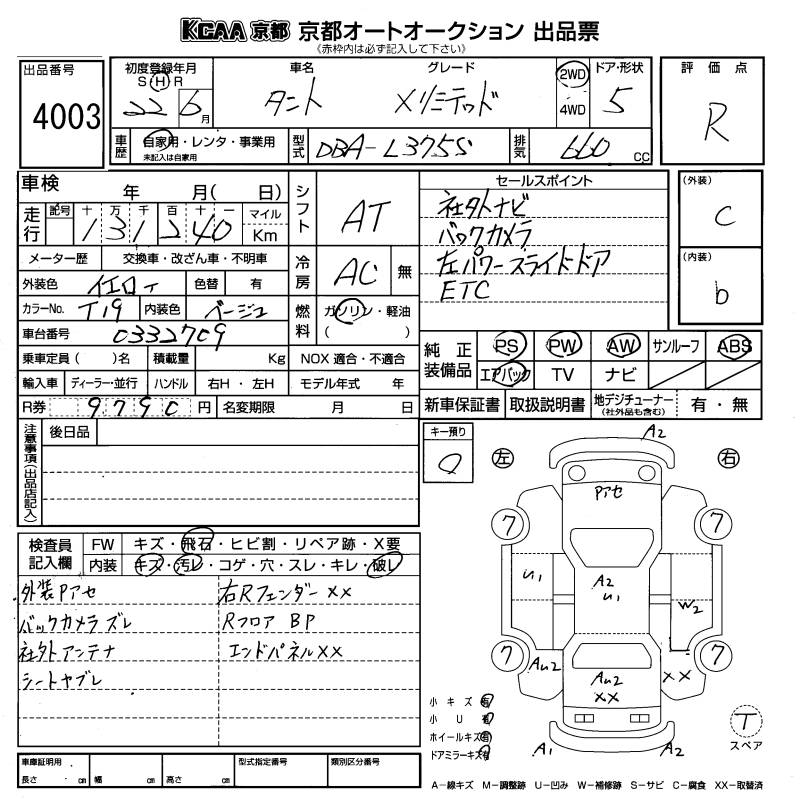 KCAA 京都 京都オートオークション 出品票
《赤枠内は必ず記入して下さい》
出品番号
4003
初度登録年月
S H R
22 6 月
車名
タント
グレード
Xリミテッド
2WD
4WD
ドア・形状
5
評価点
R
車歴
自家用・レンタ・事業用
未記入は自家用
型式
DBA-L375S
排気
660 CC
車検 年 月( 日)
走行
記号 十 万 千 百 十 一 マイル
1 3 1 2 4 0 Km
メーター歴 交換車・改ざん車・不明車
外装色 イエロイ 色替 有
カラーNo. T19 内装色 ベージュ
車台番号 0332709
乗車定員( )名 積載量 Kg
輸入車 ディーラー・並行 ハンドル 右H・左H
R券 9790 円 名変期限 月 日
シフト
AT
冷房
AC 無
燃料
ガソリン・軽油
( )
NOX 適合・不適合
モデル年式 年
セールスポイント
社外ナビ
バックカメラ
左パワースライドドア
ETC
(外装)
C
(内装)
b
純正装備品
PS PW AW サンルーフ ABS
エアバック TV ナビ
新車保証書 取扱説明書 地デジチューナー
(社外品も含む)
有・無
注意事項(出品店記入)
後日品
キー預り
左
右
A2
Pアセ
7
7
U1
A2
U1
W2
7
7
AU2
AU2
XX
XX
A1
A2
T
スペア
小キズ 有
小U 有
ホイールキズ有
ドアミラーキズ有
A-線キズ M-調整跡 U-凹み W-補修跡 S-サビ C-腐食 XX-取替済
検査員記入欄
FW キズ・飛石・ヒビ割・リペア跡・X要
内装 キズ・汚レ・コゲ・穴・スレ・キレ・破レ
外装Pアセ 右Rフェンダー XX
バックカメラズレ Rフロア BP
社外アンテナ エンドパネルXX
シートヤブレ
車庫証明用
長さ cm 幅 cm 高さ cm
型式指定番号
類別区分番号